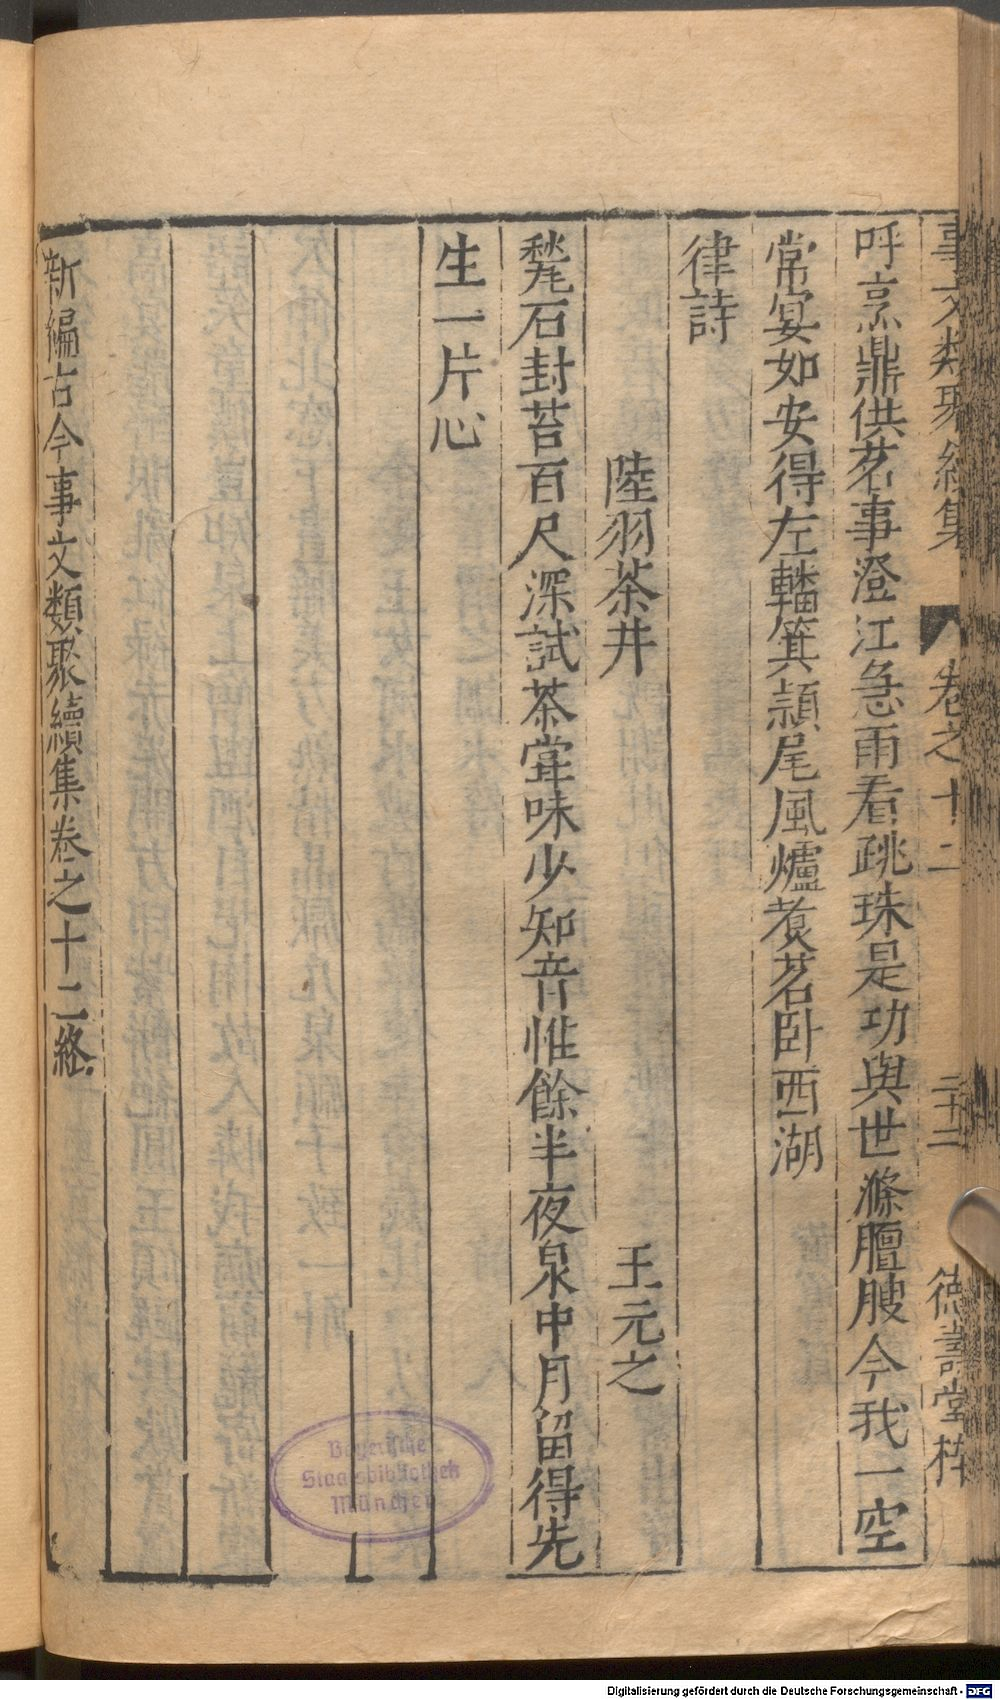 事文類聚續集 卷之十二 三十二 德壽堂梓
呼烹鼎供茗事澄江急雨看跳珠是功與世滌膻腴今我一空
常宴如安得左轓箕潁尾風爐煑茗卧西湖
律詩
陸羽茶井 王元之
甃石封苔百尺深試茶甞味少知音惟餘半夜泉中月留得先
生一片心
新編古今事文類聚續集卷之十二終
Bayerische
Staatsbibliothek
München
Digitalisierung gefördert durch die Deutsche Forschungsgemeinschaft - DFG